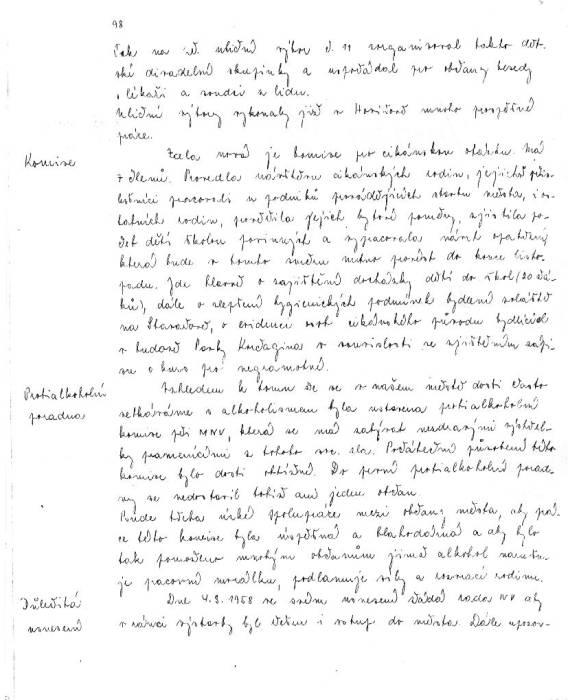 98
Tak na př. uliční výbor č. 11 zorganisoval takto dět-
ské divadelní skupinky a uspořádal pro občany besedy
s lékaři a soudci z lidu.
Uliční výbory vykonaly již v Horšově mnoho prospěšné
práce.
Komise
Zcela nová je komise pro cikánskou otázku. Má
7 členů. Provedla návštěvu cikánských rodin, jejichž přís-
lušníci pracovali u podniků provádějících stavbu města, i os-
tatních rodin, prověřila jejich bytové poměry, zjistila po-
čet dětí školou povinných a vypracovala návrh opatření,
která bude v tomto směru nutno provést do konce listo-
padu. Jde hlavně o zajištění docházky dětí do škol (20 žá-
ků), dále o zlepšení hygienických podmínek bydlení zvláště
na , o evidenci osob cikánského původu bydlících
v budově v souvislosti se zjištěním zápi-
su o kurs pro negramotné.
Protialkoholní
poradna
Vzhledem k tomu že se v našem městě dosti často
setkáváme s alkoholismem byla ustavena protialkoholní
komise při MNV, která se má zabývat nezdravými výstřel-
ky pramenícími z tohoto soc. zla. Počáteční působení této
komise bylo dosti obtížné. Do první protialkoholní porad-
ny se nedostavil totiž ani jeden občan.
Bude třeba úzké spolupráce mezi občany města, aby prá-
ce této komise byla úspěšná a blahodárná a aby bylo
tak pomoženo mnohým občanům jimž alkohol narušu-
je pracovní morálku, podlamuje síly a rozvrací rodinu.
Důležitá
usnesení
Dne 4.3.1958 ve svém usnesení žádá rada NV aby
v rámci výstavby byl řešen i vstup do města. Dále upozor-